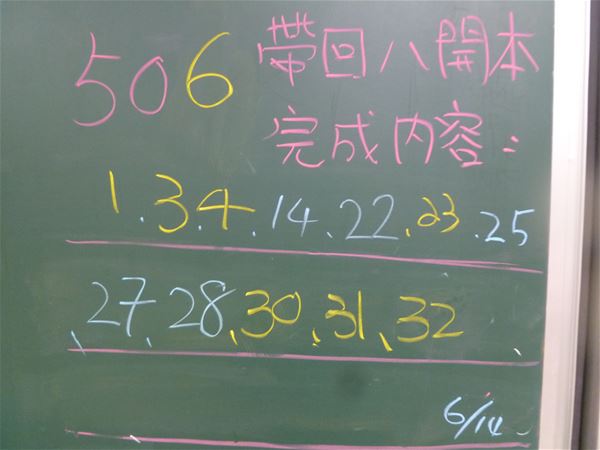 506 帶回八開本
完成內容:
1.3.4.14.22.23.25
、27、28、30、31、32
6/14